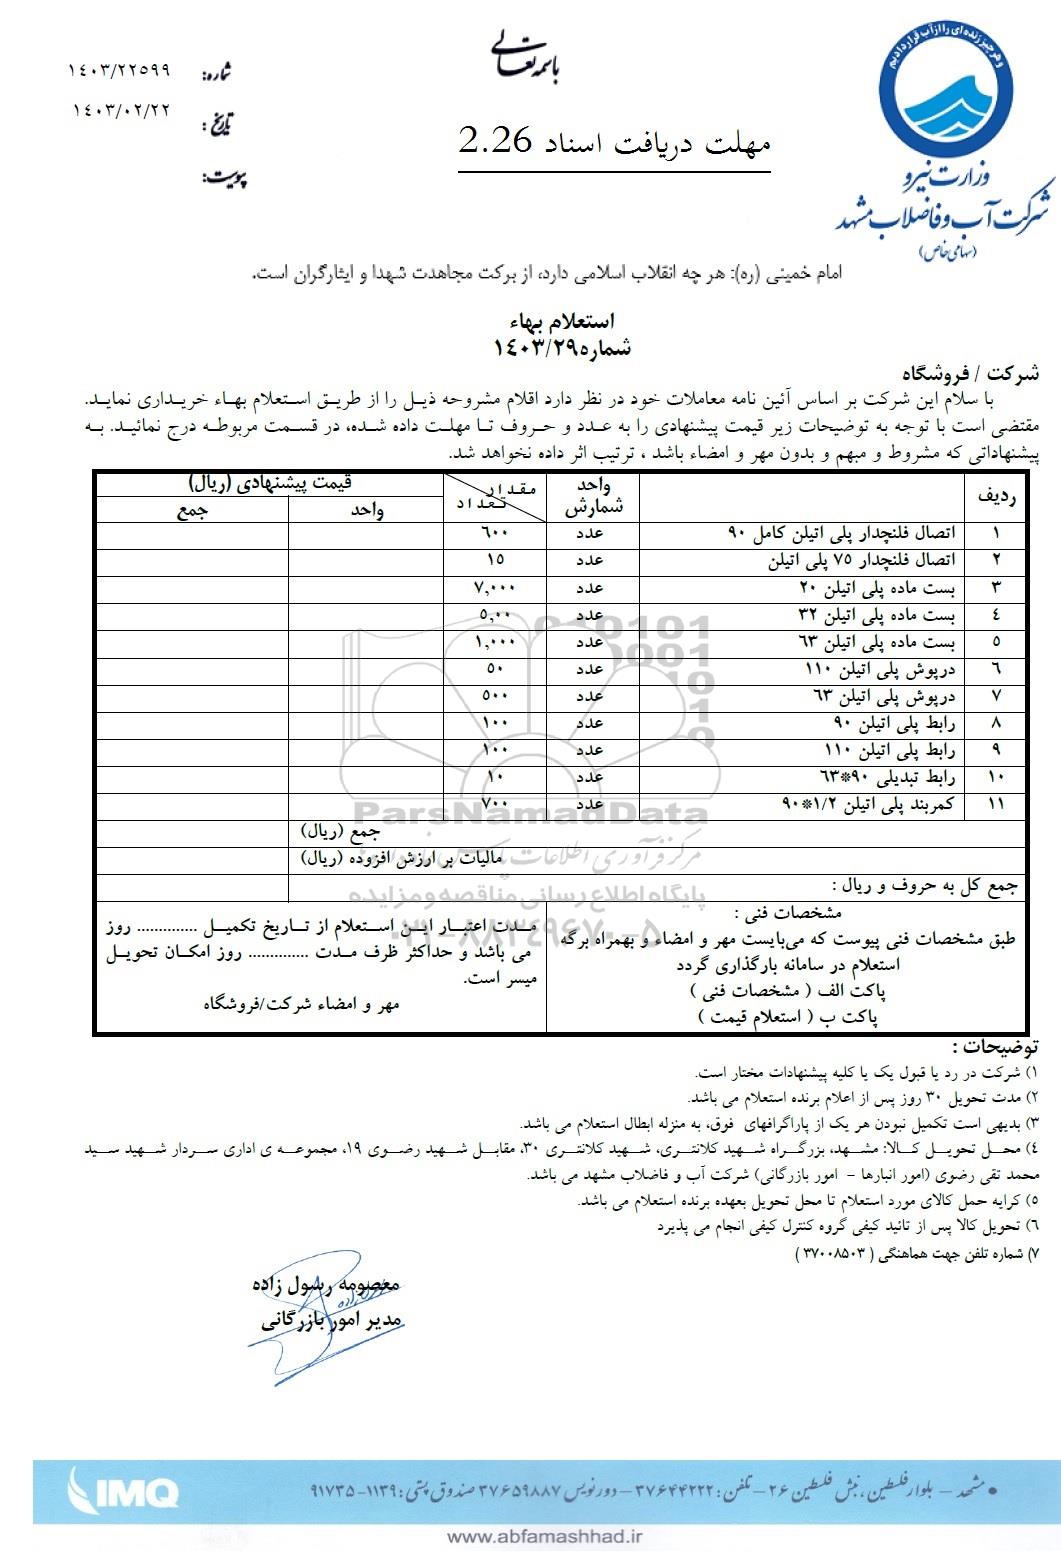 و هر چیز زنده‌ای را از آب قرار دادیم
باسمه تعالی
شماره: ١٤٠٣/٢٢٥٩٩
تاریخ: ١٤٠٣/٠٢/٢٢
پیوست:
مهلت دریافت اسناد 2.26
وزارت نیرو
شرکت آب و فاضلاب مشهد
(سهامی خاص)
امام خمینی (ره): هر چه انقلاب اسلامی دارد، از برکت مجاهدت شهدا و ایثارگران است.
استعلام بهاء
شماره ١٤٠٣/٢٩
شرکت / فروشگاه
با سلام این شرکت بر اساس آئین نامه معاملات خود در نظر دارد اقلام مشروحه ذیل را از طریق استعلام بهاء خریداری نماید.
مقتضی است با توجه به توضیحات زیر قیمت پیشنهادی را به عدد و حروف تا مهلت داده شده، در قسمت مربوطه درج نمائید. به
پیشنهاداتی که مشروط و مبهم و بدون مهر و امضاء باشد ، ترتیب اثر داده نخواهد شد.
ردیف واحد شمارش مقدار تعداد قیمت پیشنهادی (ریال)
واحد جمع
١ اتصال فلنچدار پلی اتیلن کامل ٩٠ عدد ٦٠٠
٢ اتصال فلنچدار ٧٥ پلی اتیلن عدد ١٥
٣ بست ماده پلی اتیلن ٢٠ عدد ٧,٠٠٠
٤ بست ماده پلی اتیلن ٣٢ عدد ٥,٠٠
٥ بست ماده پلی اتیلن ٦٣ عدد ١,٠٠٠
٦ درپوش پلی اتیلن ١١٠ عدد ٥٠
٧ درپوش پلی اتیلن ٦٣ عدد ٥٠٠
٨ رابط پلی اتیلن ٩٠ عدد ١٠٠
٩ رابط پلی اتیلن ١١٠ عدد ١٠٠
١٠ رابط تبدیلی ٩٠*٦٣ عدد ١٠
١١ کمربند پلی اتیلن ١/٢*٩٠ عدد ٧٠٠
جمع (ریال)
مالیات بر ارزش افزوده (ریال)
جمع کل به حروف و ریال :
مشخصات فنی :
طبق مشخصات فنی پیوست که می‌بایست مهر و امضاء و بهمراه برگه
استعلام در سامانه بارگذاری گردد
پاکت الف ( مشخصات فنی )
پاکت ب ( استعلام قیمت )
مدت اعتبار این استعلام از تاریخ تکمیل ............. روز
می باشد و حداکثر ظرف مدت ............. روز امکان تحویل
میسر است.
مهر و امضاء شرکت/فروشگاه
ParsNamadData
مرکز فرآوری اطلاعات پارس نماد داده ها
پایگاه اطلاع رسانی مناقصه و مزایده
٠٢١-٨٨٣٤٩٦٧٠-٥
توضیحات :
١) شرکت در رد یا قبول یک یا کلیه پیشنهادات مختار است.
٢) مدت تحویل ٣٠ روز پس از اعلام برنده استعلام می باشد.
٣) بدیهی است تکمیل نبودن هر یک از پاراگرافهای فوق، به منزله ابطال استعلام می باشد.
٤) محل تحویل کالا: مشهد، بزرگراه شهید کلانتری، شهید کلانتری ٣٠، مقابل شهید رضوی ١٩، مجموعه ی اداری سردار شهید سید
محمد تقی رضوی (امور انبارها – امور بازرگانی) شرکت آب و فاضلاب مشهد می باشد.
٥) کرایه حمل کالای مورد استعلام تا محل تحویل بعهده برنده استعلام می باشد.
٦) تحویل کالا پس از تائید کیفی گروه کنترل کیفی انجام می پذیرد
٧) شماره تلفن جهت هماهنگی ( ٣٧٠٠٨٥٠٣ )
معصومه رسول زاده
مدیر امور بازرگانی
• مشهد – بلوار فلسطین، نبش فلسطین ٢٦ – تلفن: ٣٧٦٤٤٢٢٢ – دورنویس ٣٧٦٥٩٨٨٧ صندوق پستی: ١١٣٩-٩١٧٣٥
IMQ
www.abfamashhad.ir